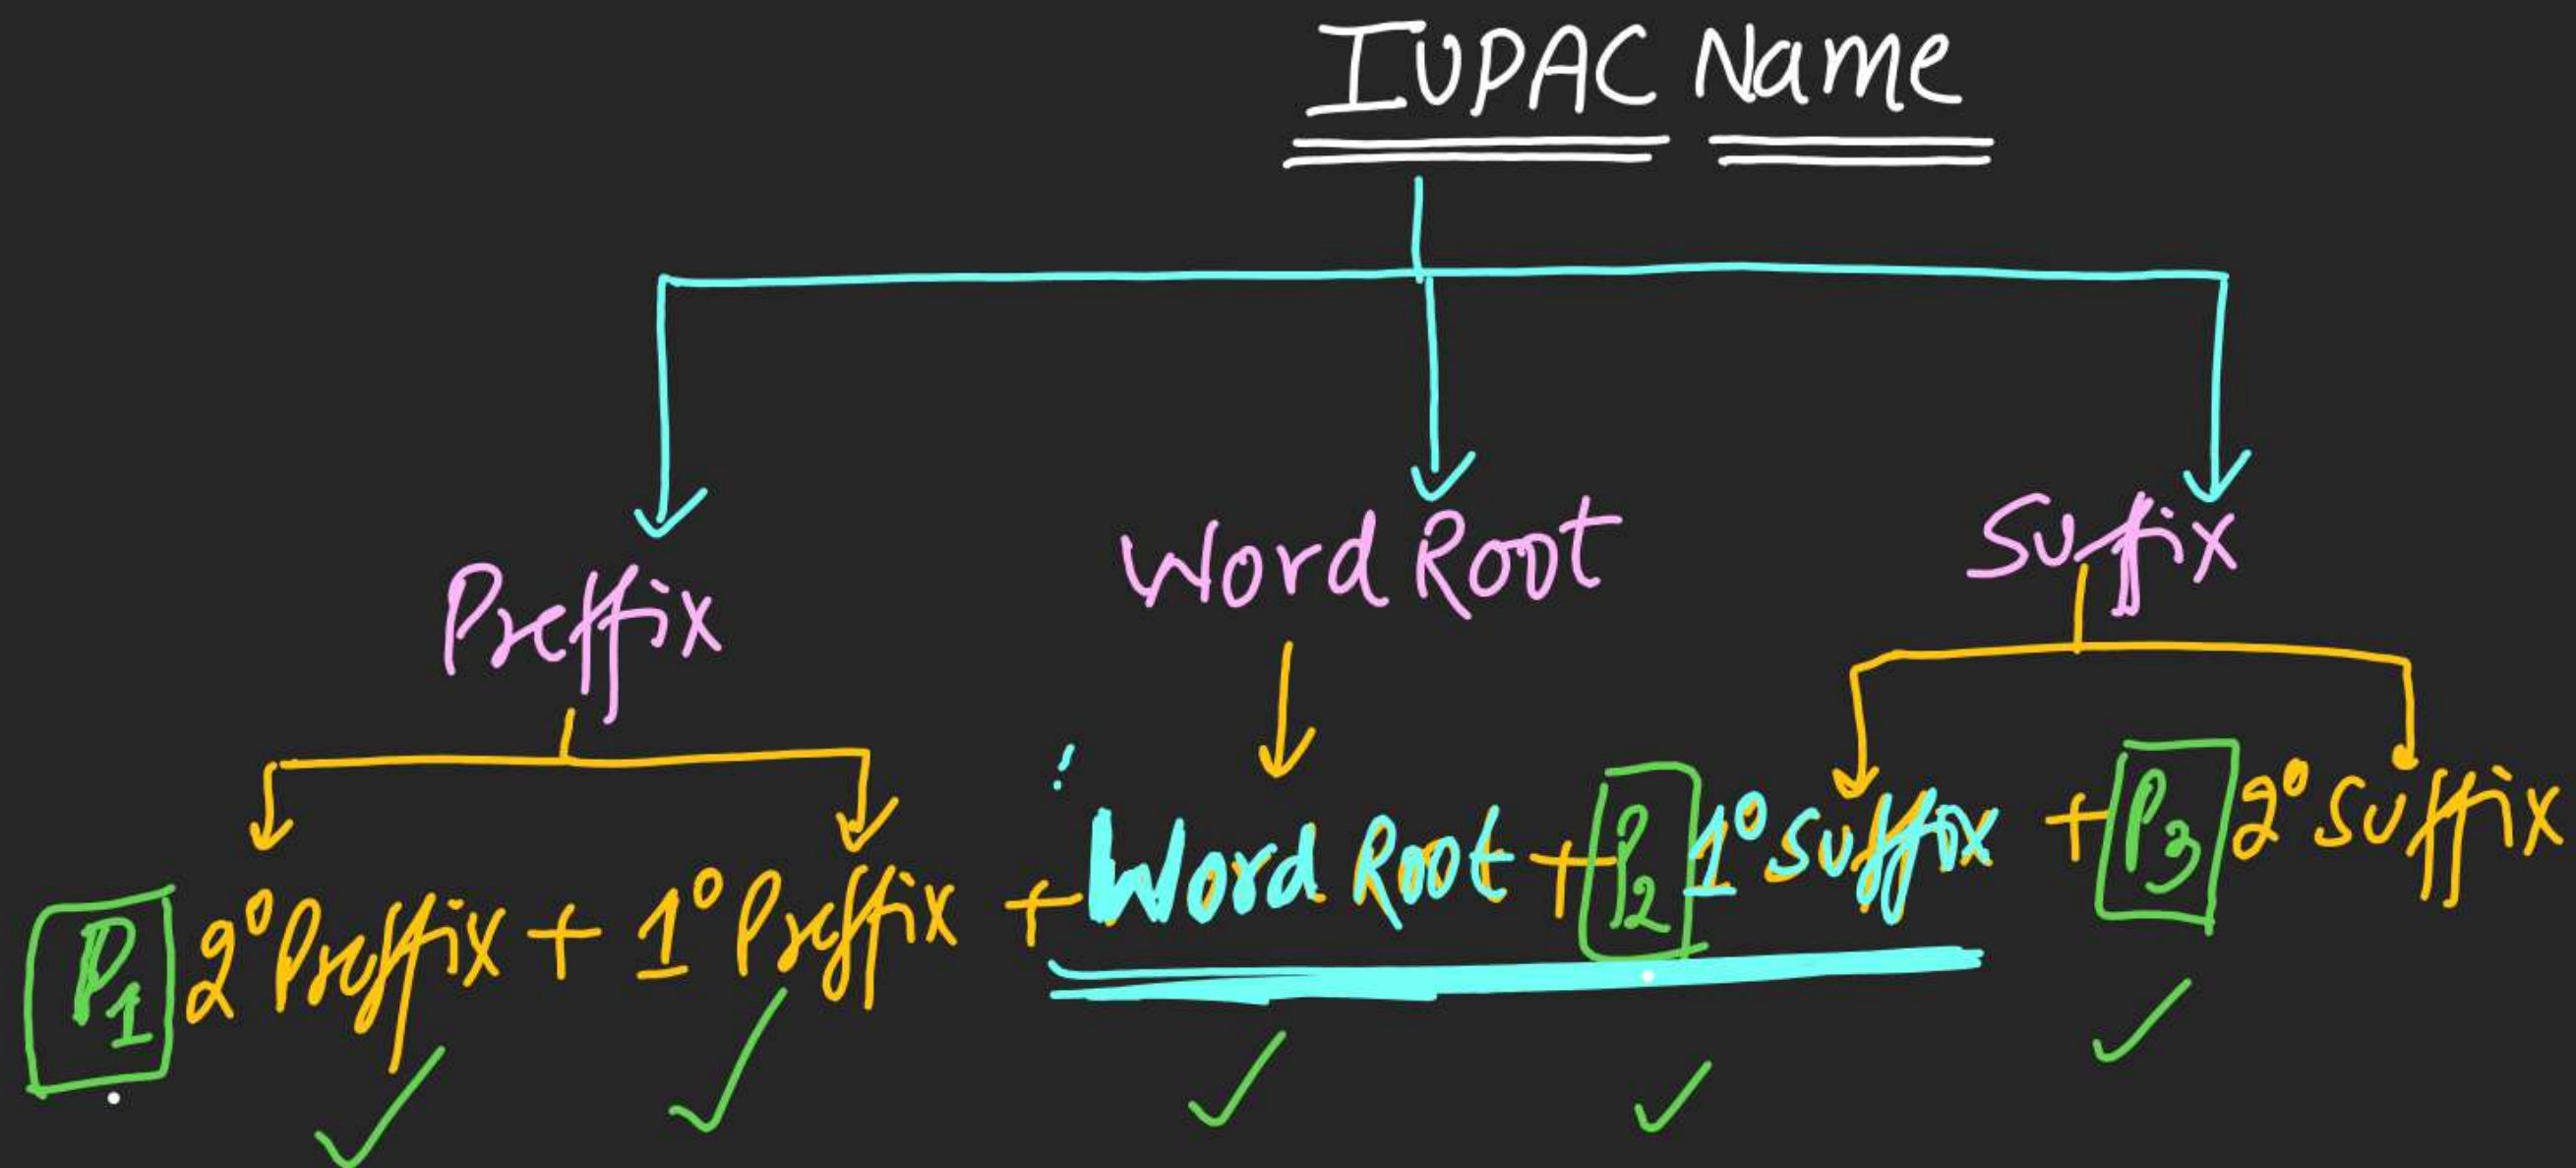 IUPAC Name
Preffix Word Root Suffix
P1 2° Preffix + 1° Preffix + Word Root + P2 1° Suffix + P3 2° Suffix